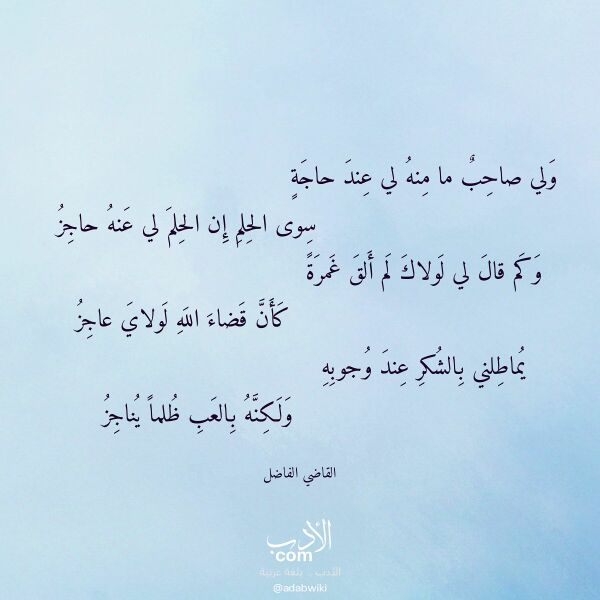 وَلي صاحِبٌ ما مِنهُ لي عِندَ حاجَةٍ
سِوى الحِلمِ إِن الحِلمَ لي عَنهُ حاجِزُ
وَكَم قالَ لي لَولاكَ لَم أَلقَ غَمرَةً
كَأَنَّ قَضاءَ اللَهِ لَولايَ عاجِزُ
يُماطِلني بِالشُكرِ عِندَ وُجوبِهِ
وَلَكِنَّهُ بِالعَبِ ظُلماً يُناجِزُ
القاضي الفاضل
الأدب
com
الأدب .. بلغة عربية
@adabwiki